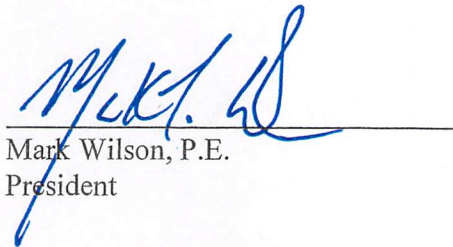 Mark Wilson, P.E.
President